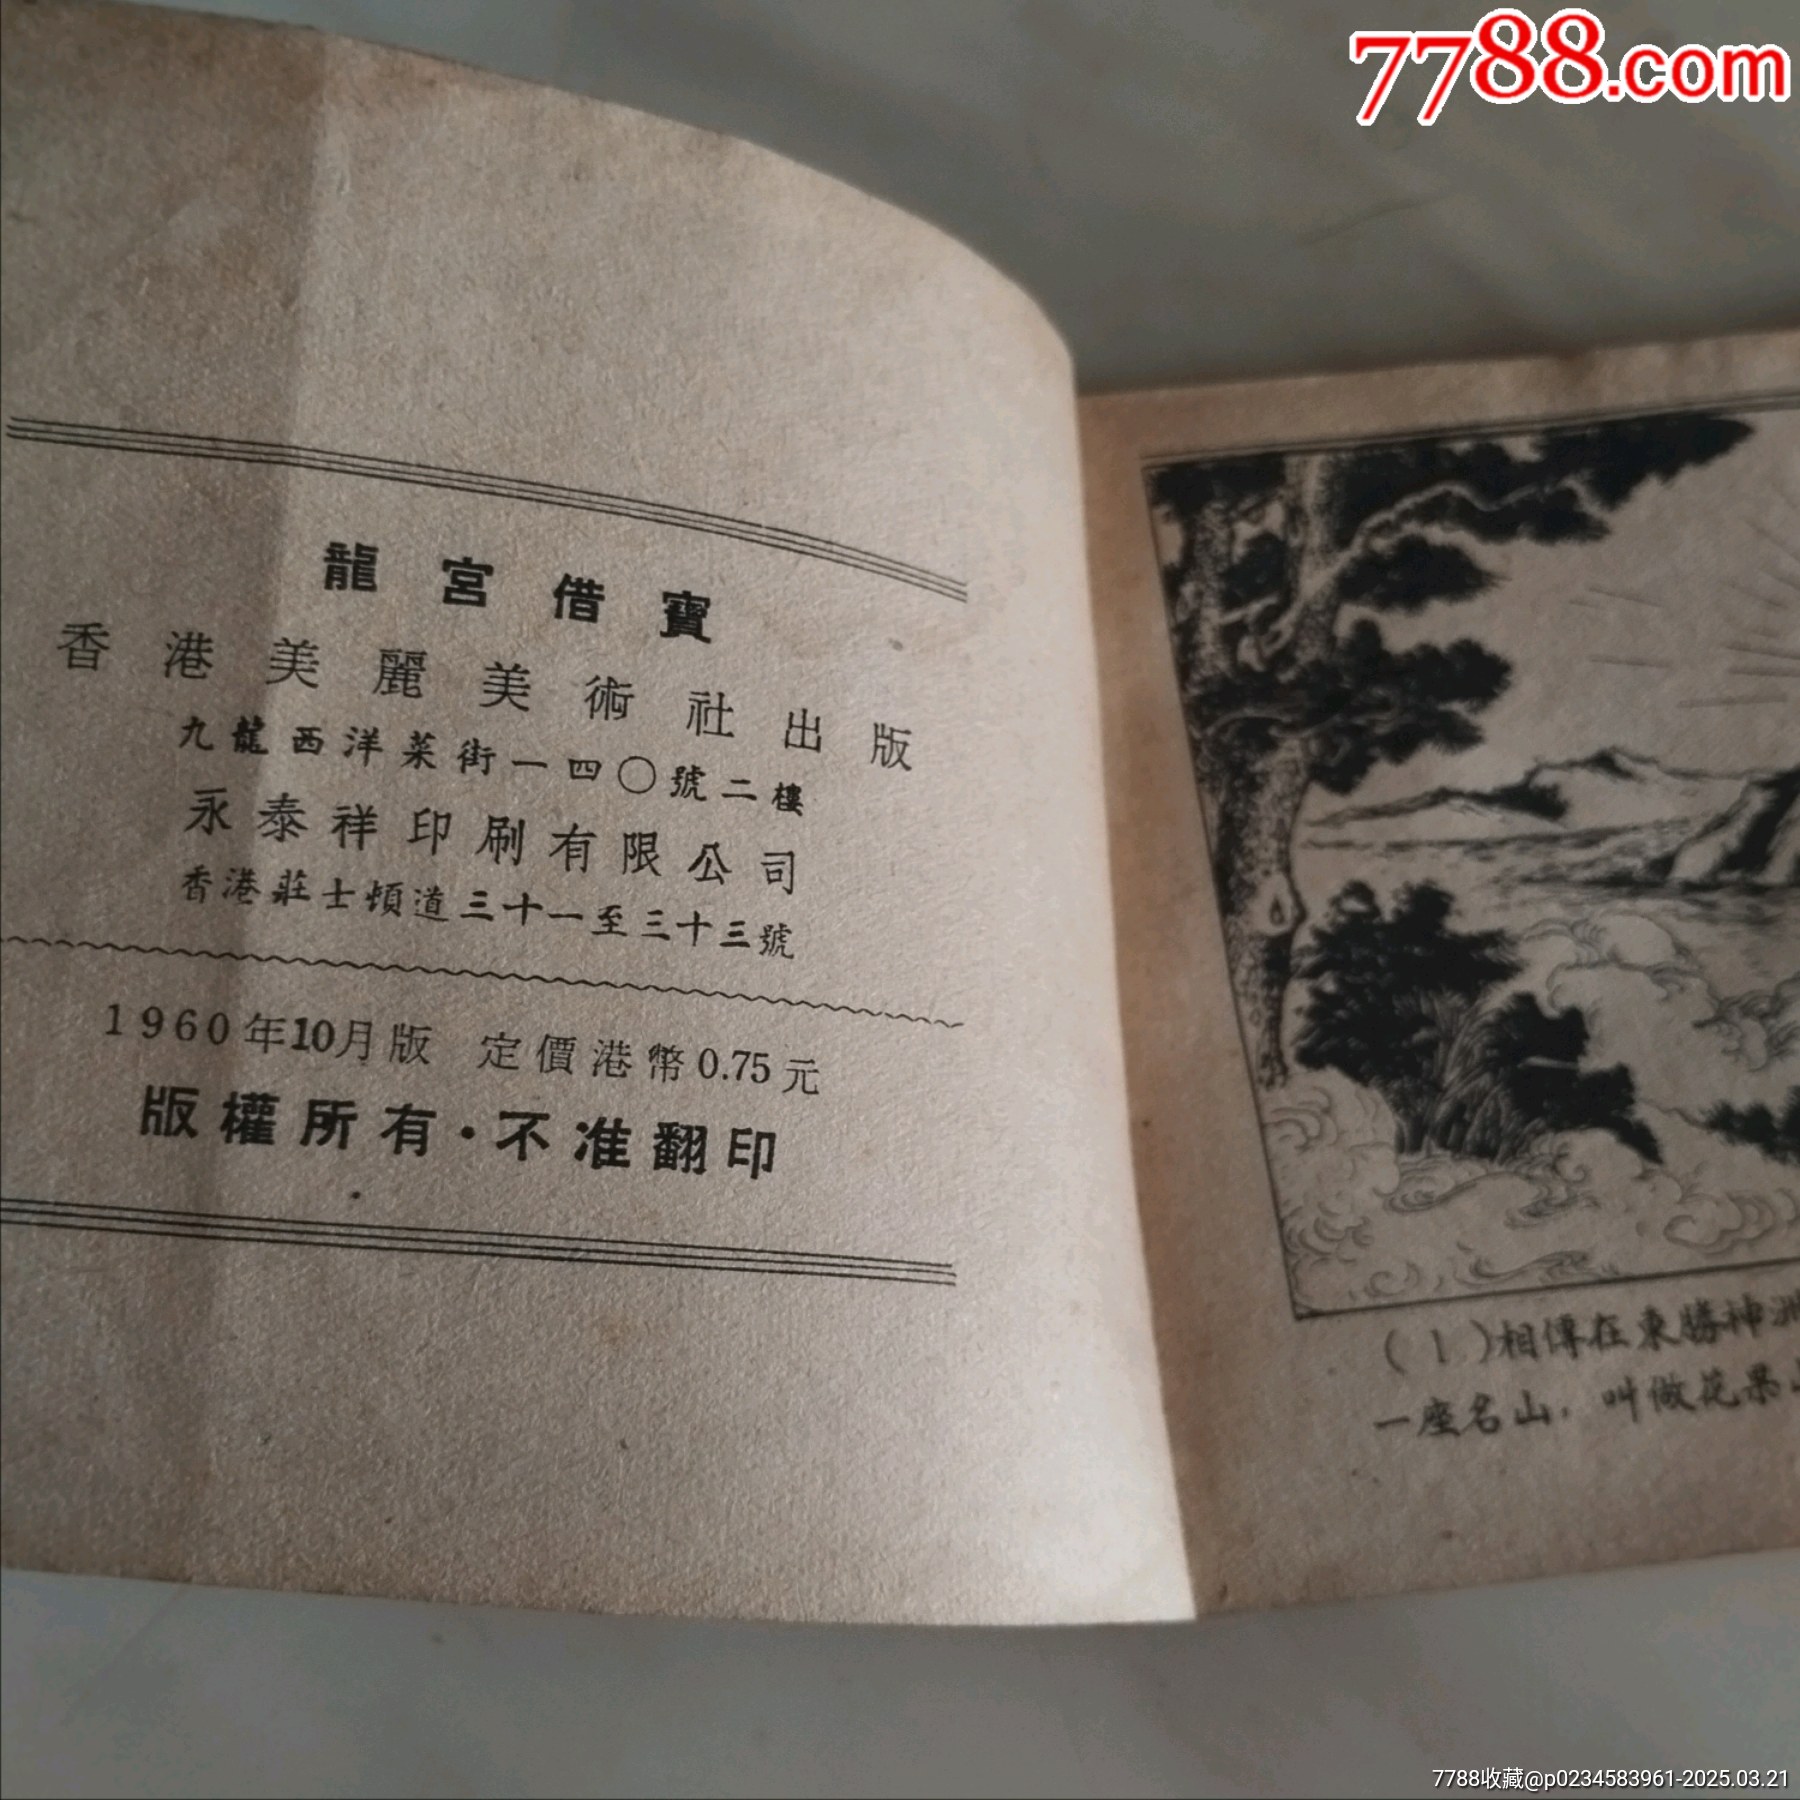 7788.com
龍宮借寶
香港美麗美術社出版
九龍西洋菜街一四〇號二樓
永泰祥印刷有限公司
香港莊士頓道三十一至三十三號
1960年10月版 定價港幣0.75元
版權所有·不准翻印
(1)相傳在東勝神洲
一座名山，叫做花果山
7788收藏@p0234583961-2025.03.21